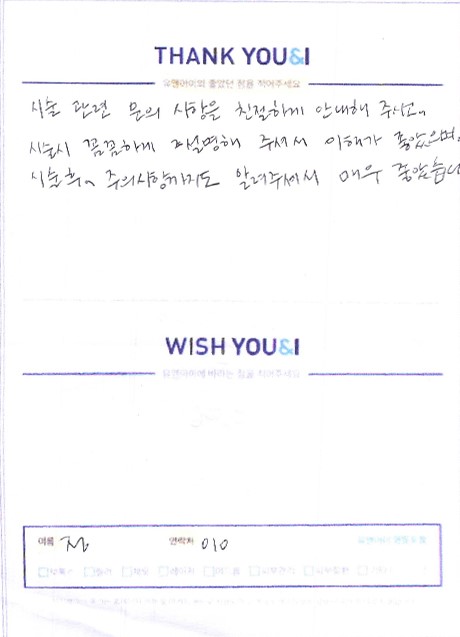 THANK YOU&I
유앤아이의 좋았던 점을 적어주세요
시술 관련 문의 사항을 친절하게 안내해 주시고,
시술시 꼼꼼하게 설명해 주셔서 이해가 좋았으며,
시술후, 주의사항까지도 알려주셔서 매우 좋았습니
WISH YOU&I
유앤아이에 바라는 점을 적어주세요
이름 연락처 010
보톡스 필러 제모 레이저 여드름